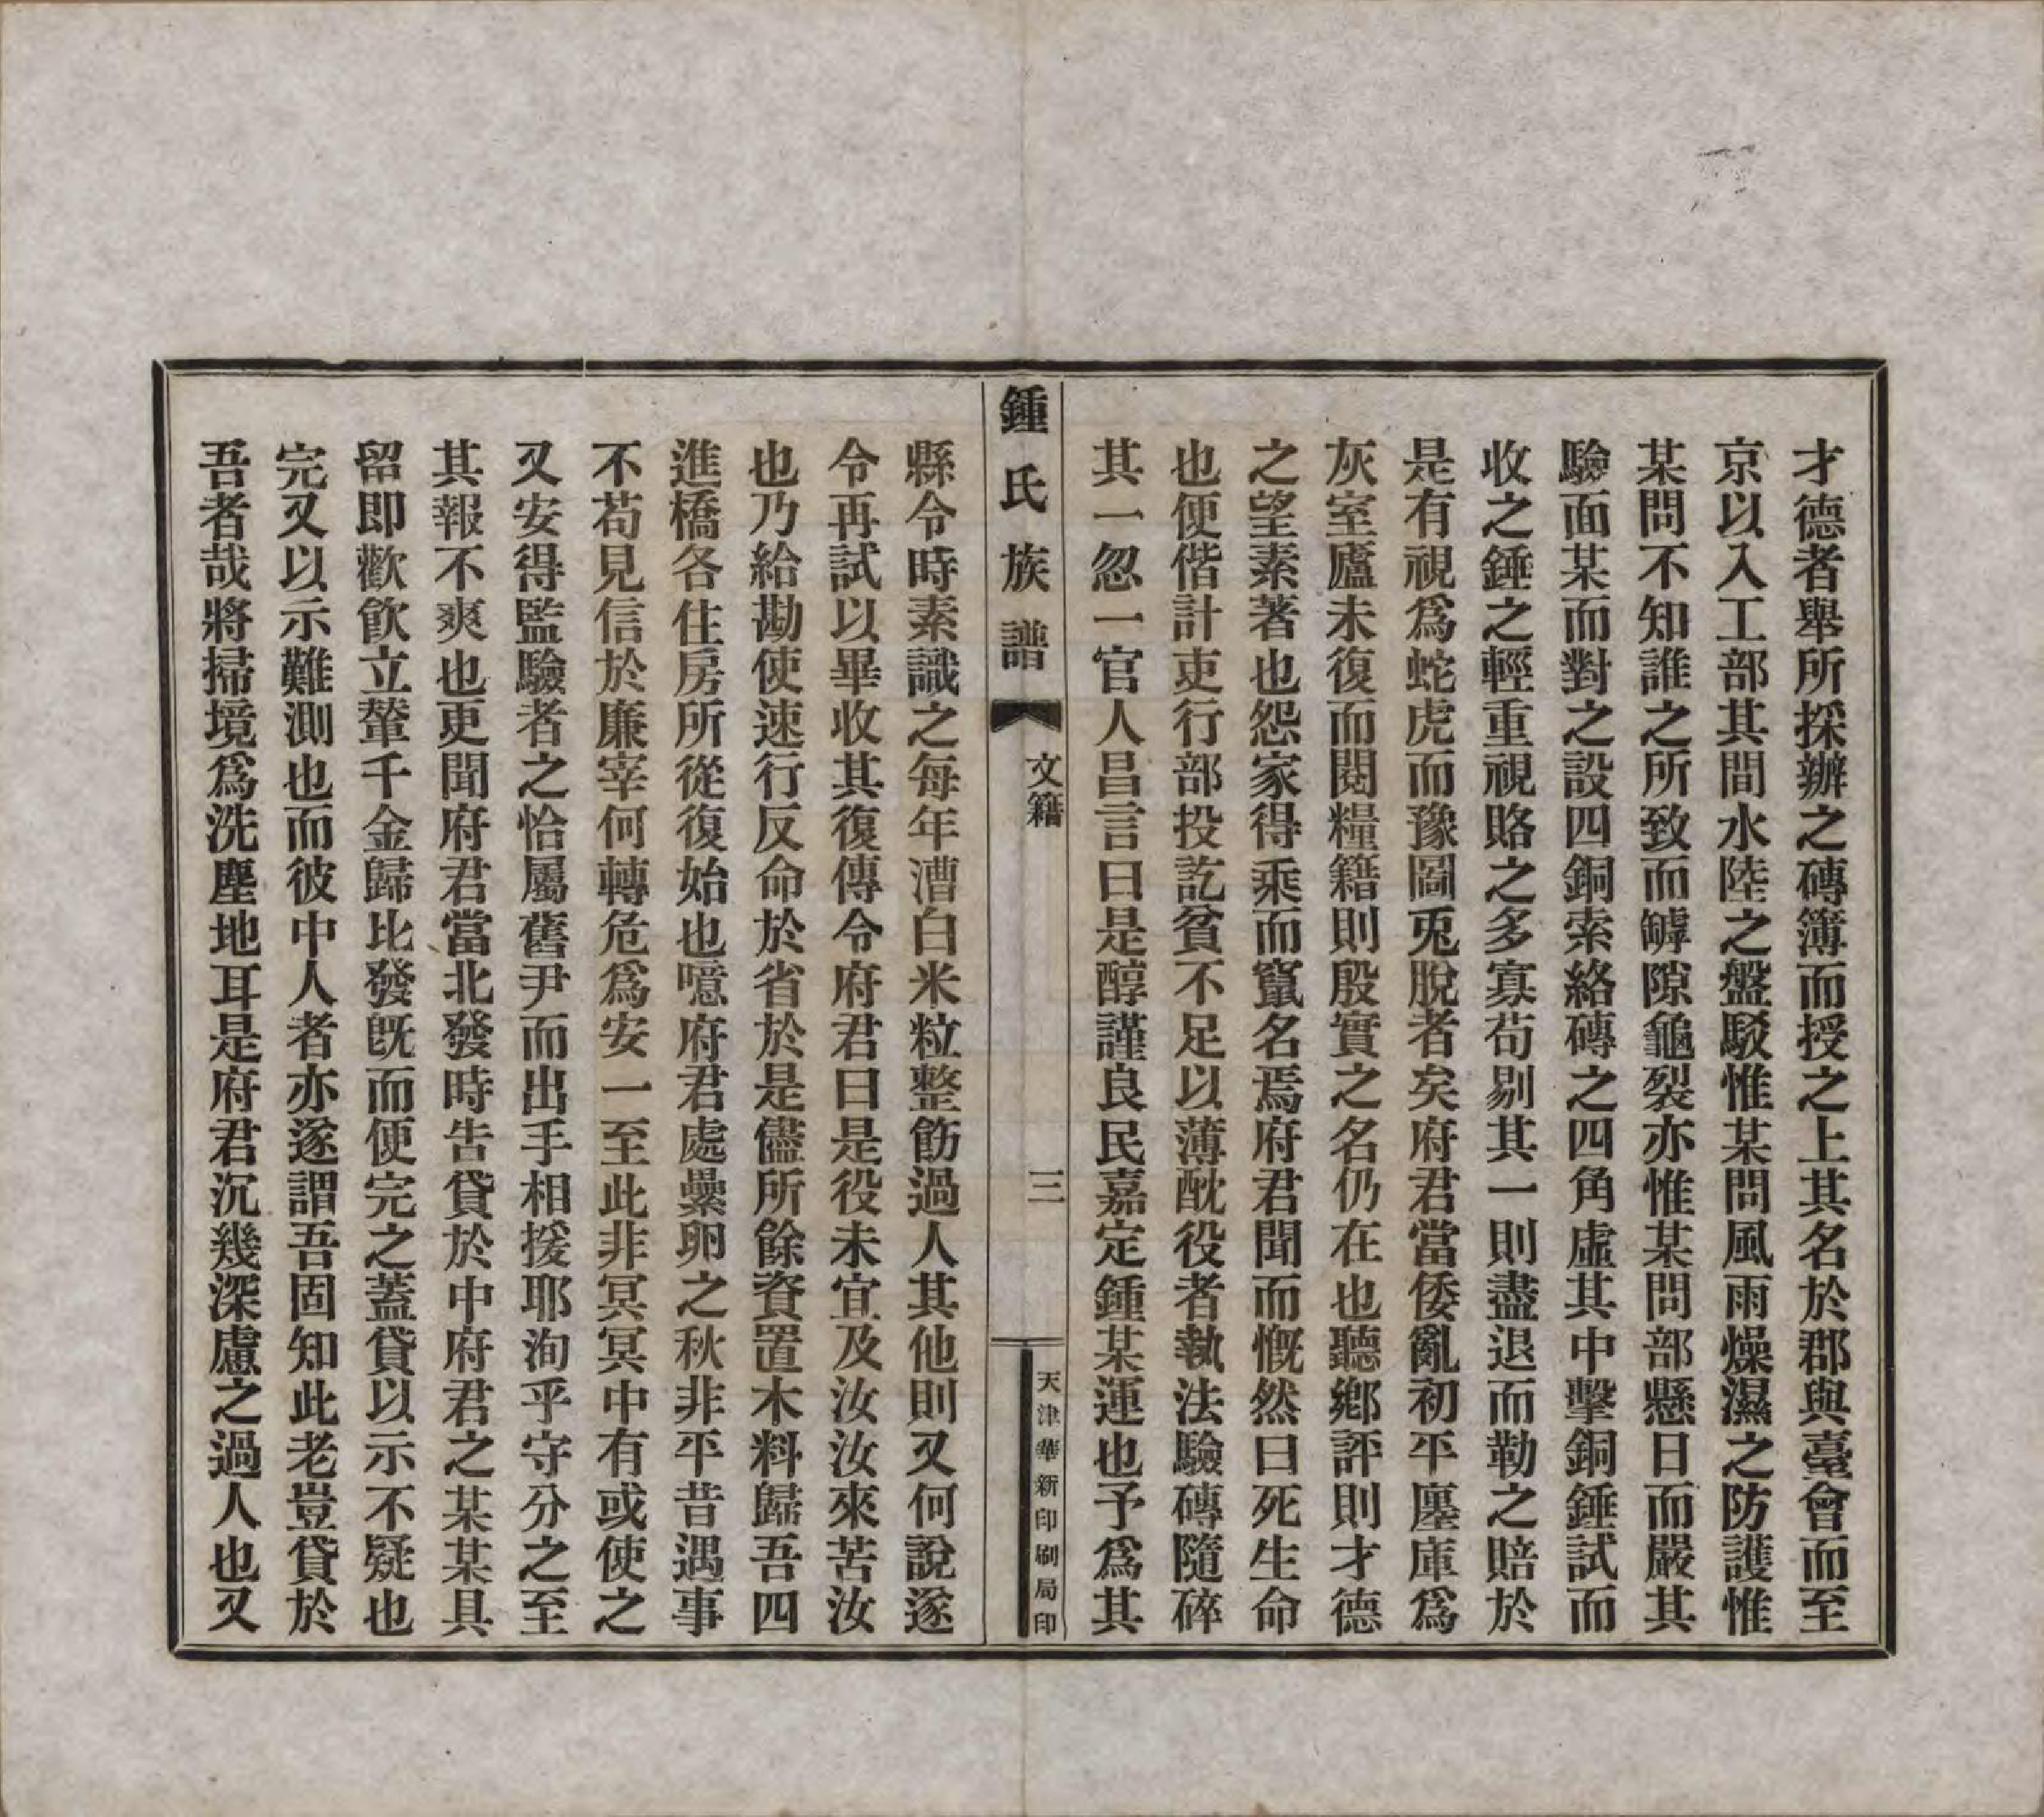 才德者舉所採辦之磚簿而授之上其名於郡與臺會而至
京以入工部其間水陸之盤駁惟某問風雨燥濕之防護惟
某問不知誰之所致而罅隙龜裂亦惟某問部懸日而嚴其
驗面某而對之設四銅索絡磚之四角虛其中擊銅錘試而
收之錘之輕重視賂之多寡苟剔其一則盡退而勒之賠於
是有視爲蛇虎而豫圖兎脫者矣府君當倭亂初平廛庫爲
灰室廬未復而閱糧籍則殷實之名仍在也聽鄉評則才德
之望素著也怨家得乘而竄名焉府君聞而慨然曰死生命
也便偕計吏行部投訖貧不足以薄酖役者執法驗磚隨碎
其一忽一官人昌言曰是醇謹良民嘉定鍾某運也予爲其
鍾氏族譜
文籍
三
天津華新印刷局印
縣令時素識之每年漕白米粒整飭過人其他則又何說遂
令再試以畢收其復傳令府君曰是役未宜及汝汝來苦汝
也乃給勘使速行反命於省於是儘所餘資置木料歸吾四
進橋各住房所從復始也噫府君處纍卵之秋非平昔遇事
不苟見信於廉宰何轉危爲安一至此非冥冥中有或使之
又安得監驗者之恰屬舊尹而出手相援耶洵乎守分之至
其報不爽也更聞府君當北發時告貸於中府君之某某具
留即歡飮立輦千金歸比發旣而便完之蓋貸以示不疑也
完又以示難測也而彼中人者亦遂謂吾固知此老豈貸於
吾者哉將掃境爲洗塵地耳是府君沉幾深慮之過人也又